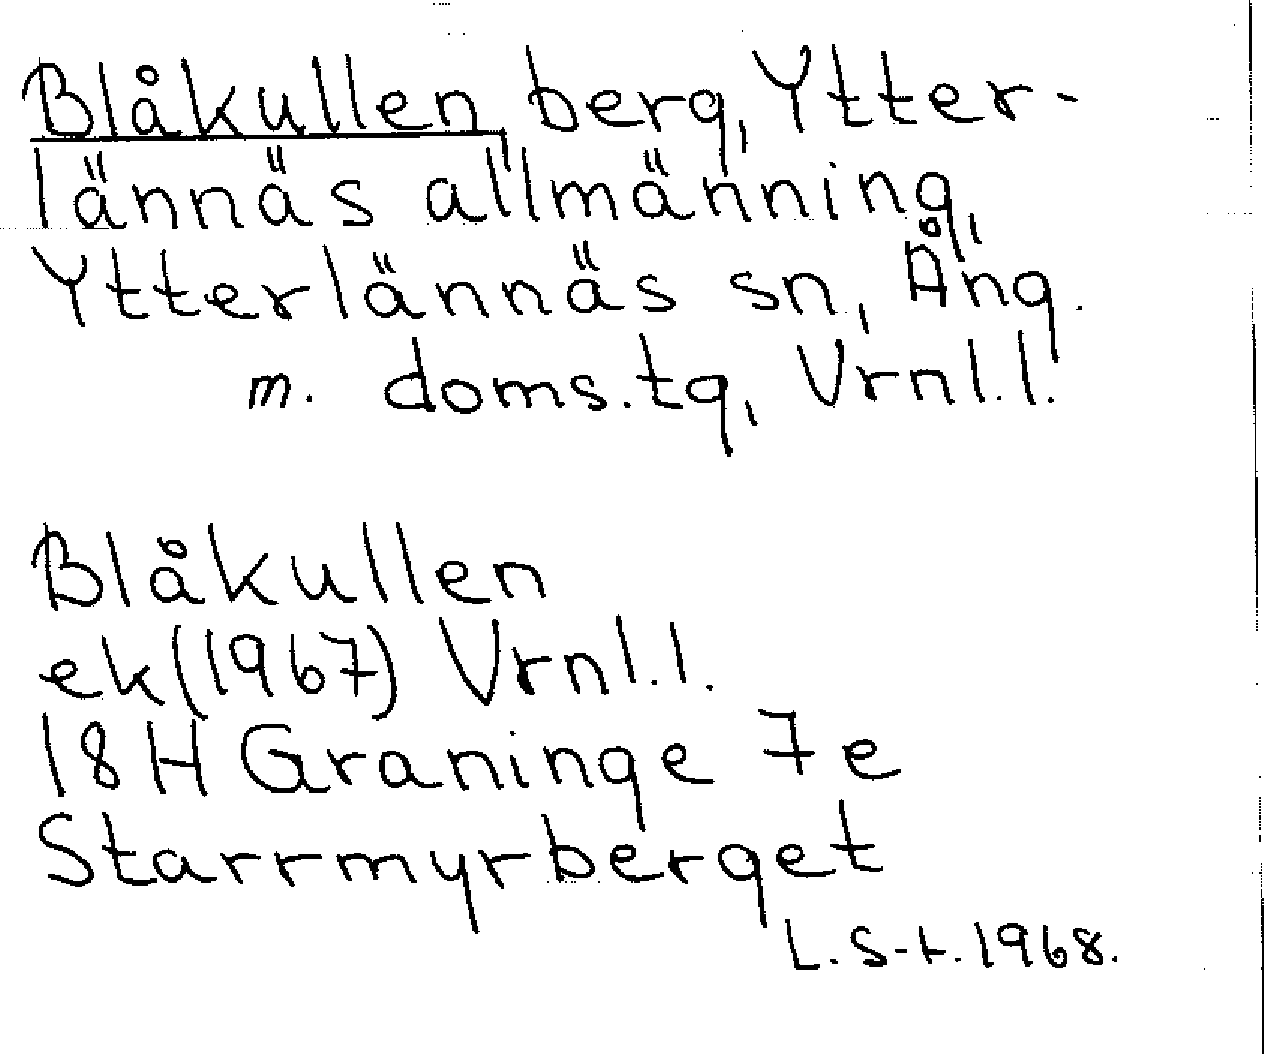 Blåkullen berg, Ytter-
lännäs allmänning,
Ytterlännäs sn, Ång.
m. doms.tg, Vrnl.l.
Blåkullen
ek(1967) Vrnl.l.
18H Graninge 7e
Starrmyrberget
L. S-t. 1968.